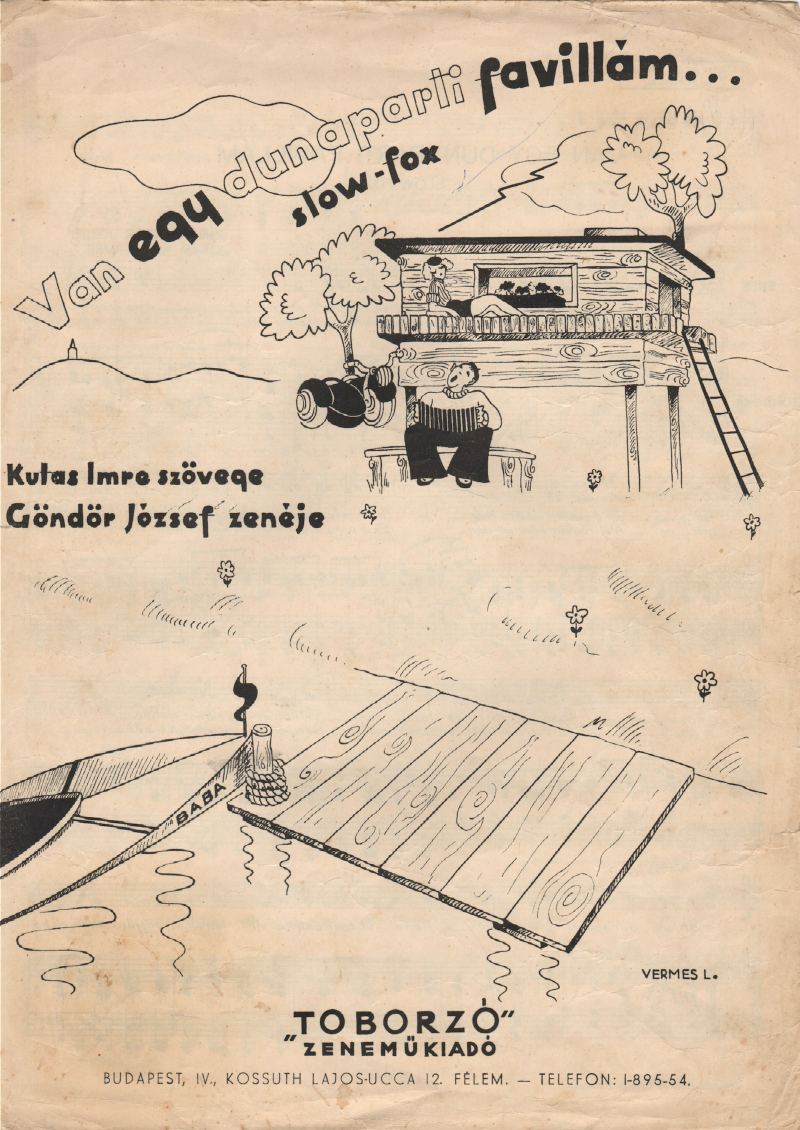 Van egy dunaparti favillám...
slow-fox
Kutas Imre szövege
Göndör József zenéje
"BABA"
VERMES L.
"TOBORZÓ"
"ZENEMŰKIADÓ
BUDAPEST, IV., KOSSUTH LAJOS-UCCA 12. FÉLEM. — TELEFON: 1-895-54.